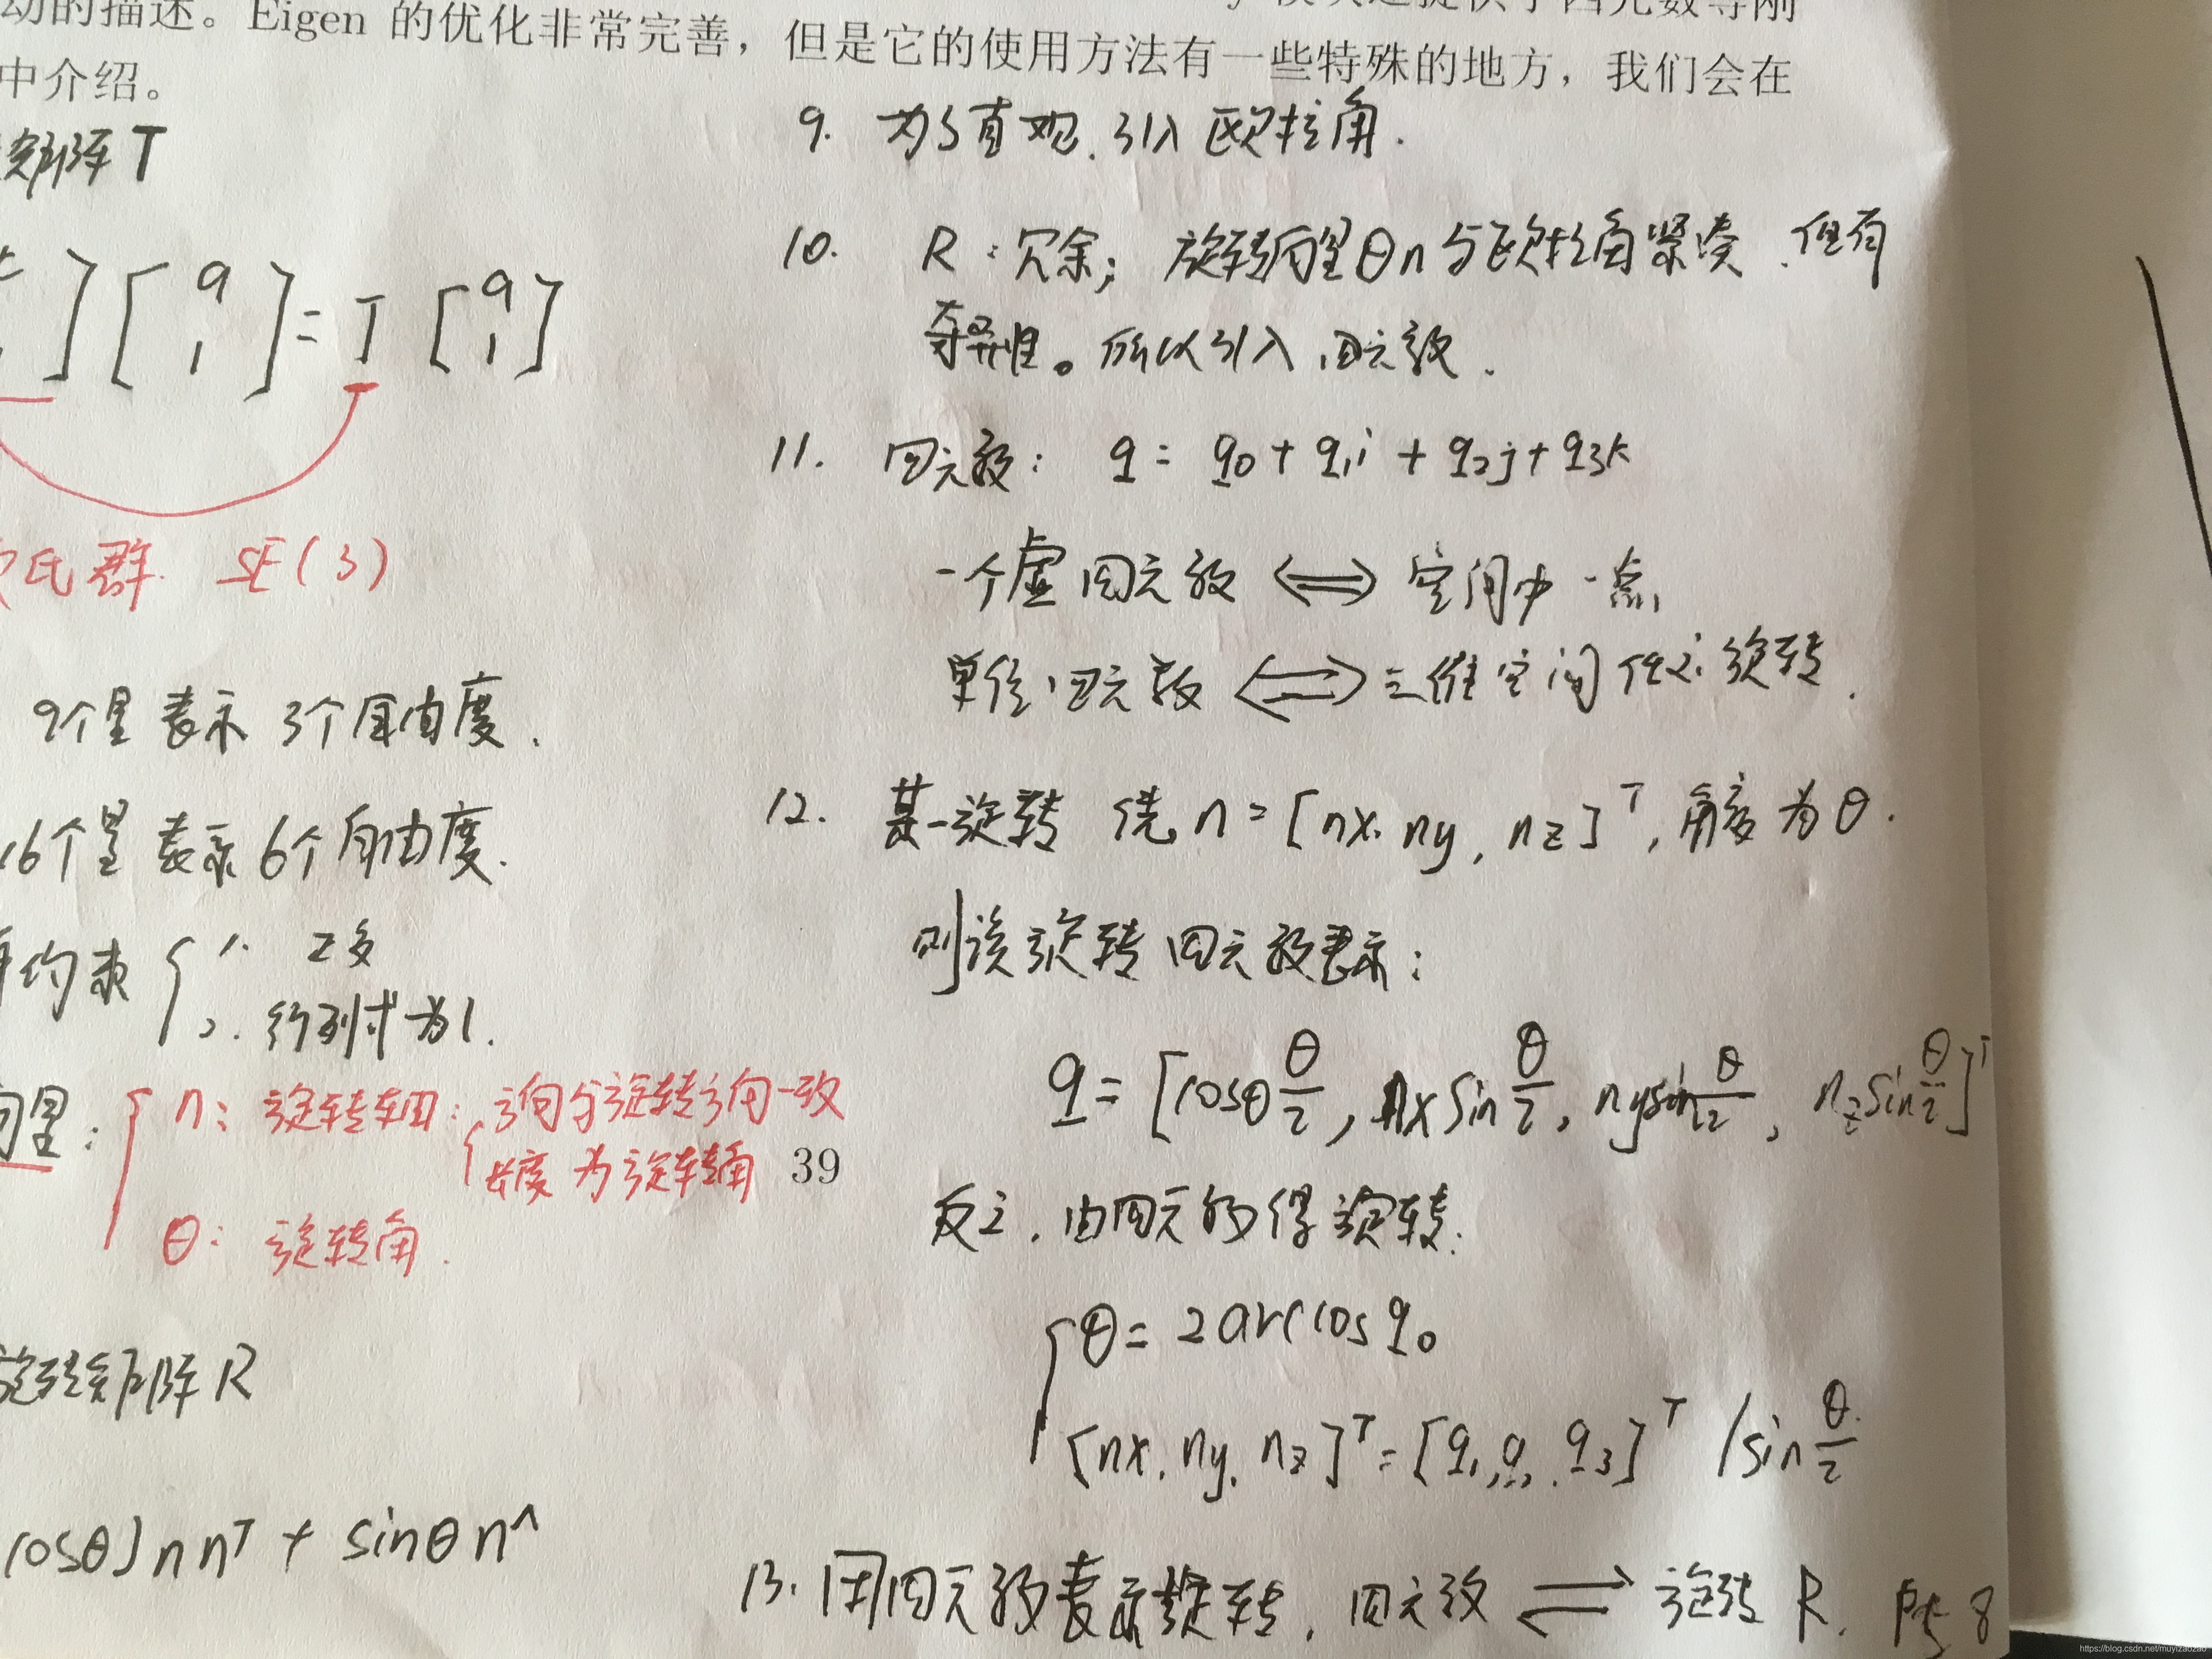 动的描述。Eigen 的优化非常完善，但是它的使用方法有一些特殊的地方，我们会在
中介绍。
矩阵 T
] [ a 1 ] = T [ a 1 ]
氏群 SE(3)
9个量表示 3个自由度.
16个量表示 6个自由度.
约束 { 1. 正交
2. 行列式为1.
向量: { n: 旋转轴: { 方向与旋转方向一致
长度为旋转角
θ: 旋转角.
39
旋转矩阵 R
cosθ) n nᵀ + sinθ n^
9. 为了直观, 引入欧拉角.
10. R: 冗余; 旋转向量θn与欧拉角紧凑, 但有
奇异性。所以引入四元数.
11. 四元数: q = q0 + q1i + q2j + q3k
一个虚四元数 ⟺ 空间中一点
单位四元数 ⟺ 三维空间任意旋转.
12. 某一旋转 绕 n = [nx, ny, nz]ᵀ, 角度为θ.
则该旋转四元数表示:
q = [cosθ θ/2, nx sin θ/2, ny sin θ/2, nz sin θ/2]ᵀ
反之, 由四元数得旋转:
{ θ = 2arccos q0
[nx, ny, nz]ᵀ = [q1, q2, q3]ᵀ / sin θ/2
13. 用四元数表示旋转, 四元数 ⇌ 旋转 R. 8
https://blog.csdn.net/muyizaozao